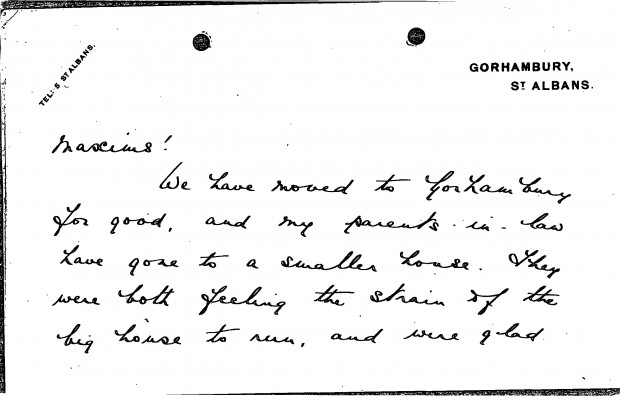 TEL: 5 ST ALBANS.
GORHAMBURY,
ST ALBANS.
Maxims!
We have moved to Gorhambury
for good, and my parents-in-law
have gone to a smaller house. They
were both feeling the strain of the
big house to run, and were glad